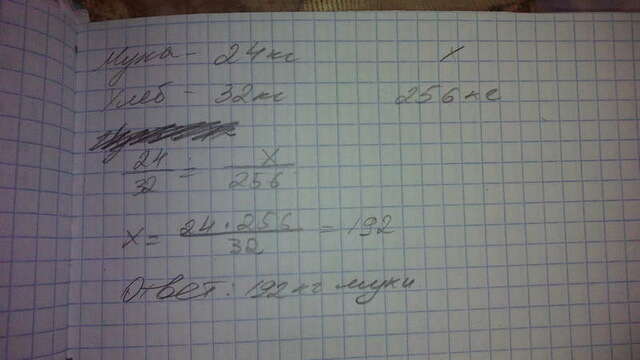 Мука - 24 кг x
Хлеб - 32 кг 256 кг
24/32 = x/256
x = 24 · 256/32 = 192
Ответ: 192 кг муки